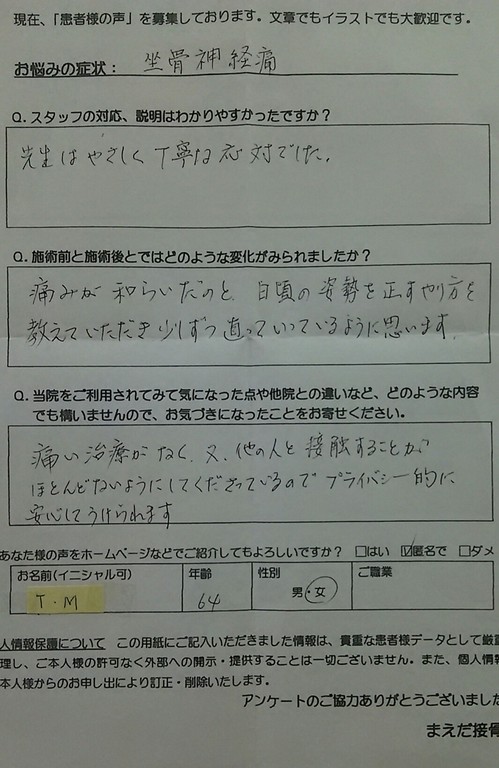 現在、「患者様の声」を募集しております。文章でもイラストでも大歓迎です。
お悩みの症状： 坐骨神経痛
Q. スタッフの対応、説明はわかりやすかったですか？
先生はやさしく丁寧な応対でした。
Q. 施術前と施術後とではどのような変化がみられましたか？
痛みが和らいだのと、日頃の姿勢を正すやり方を
教えていただき少しずつ直っていっているように思います。
Q. 当院をご利用されてみて気になった点や他院との違いなど、どのような内容
でも構いませんので、お気づきになったことをお寄せください。
痛い治療がなく、又、他の人と接触することが
ほとんどないようにしてくださっているのでプライバシー的に
安心してうけられます
あなた様の声をホームページなどでご紹介してもよろしいですか？ □はい ☑匿名で □ダメ
お名前(イニシャル可) 年齢 性別 ご職業
T・M 64 男・女
人情報保護について この用紙にご記入いただきました情報は、貴重な患者様データとして厳重
理し、ご本人様の許可なく外部への開示・提供することは一切ございません。また、個人情報
本人様からのお申し出により訂正・削除いたします。
アンケートのご協力ありがとうございました
まえだ接骨